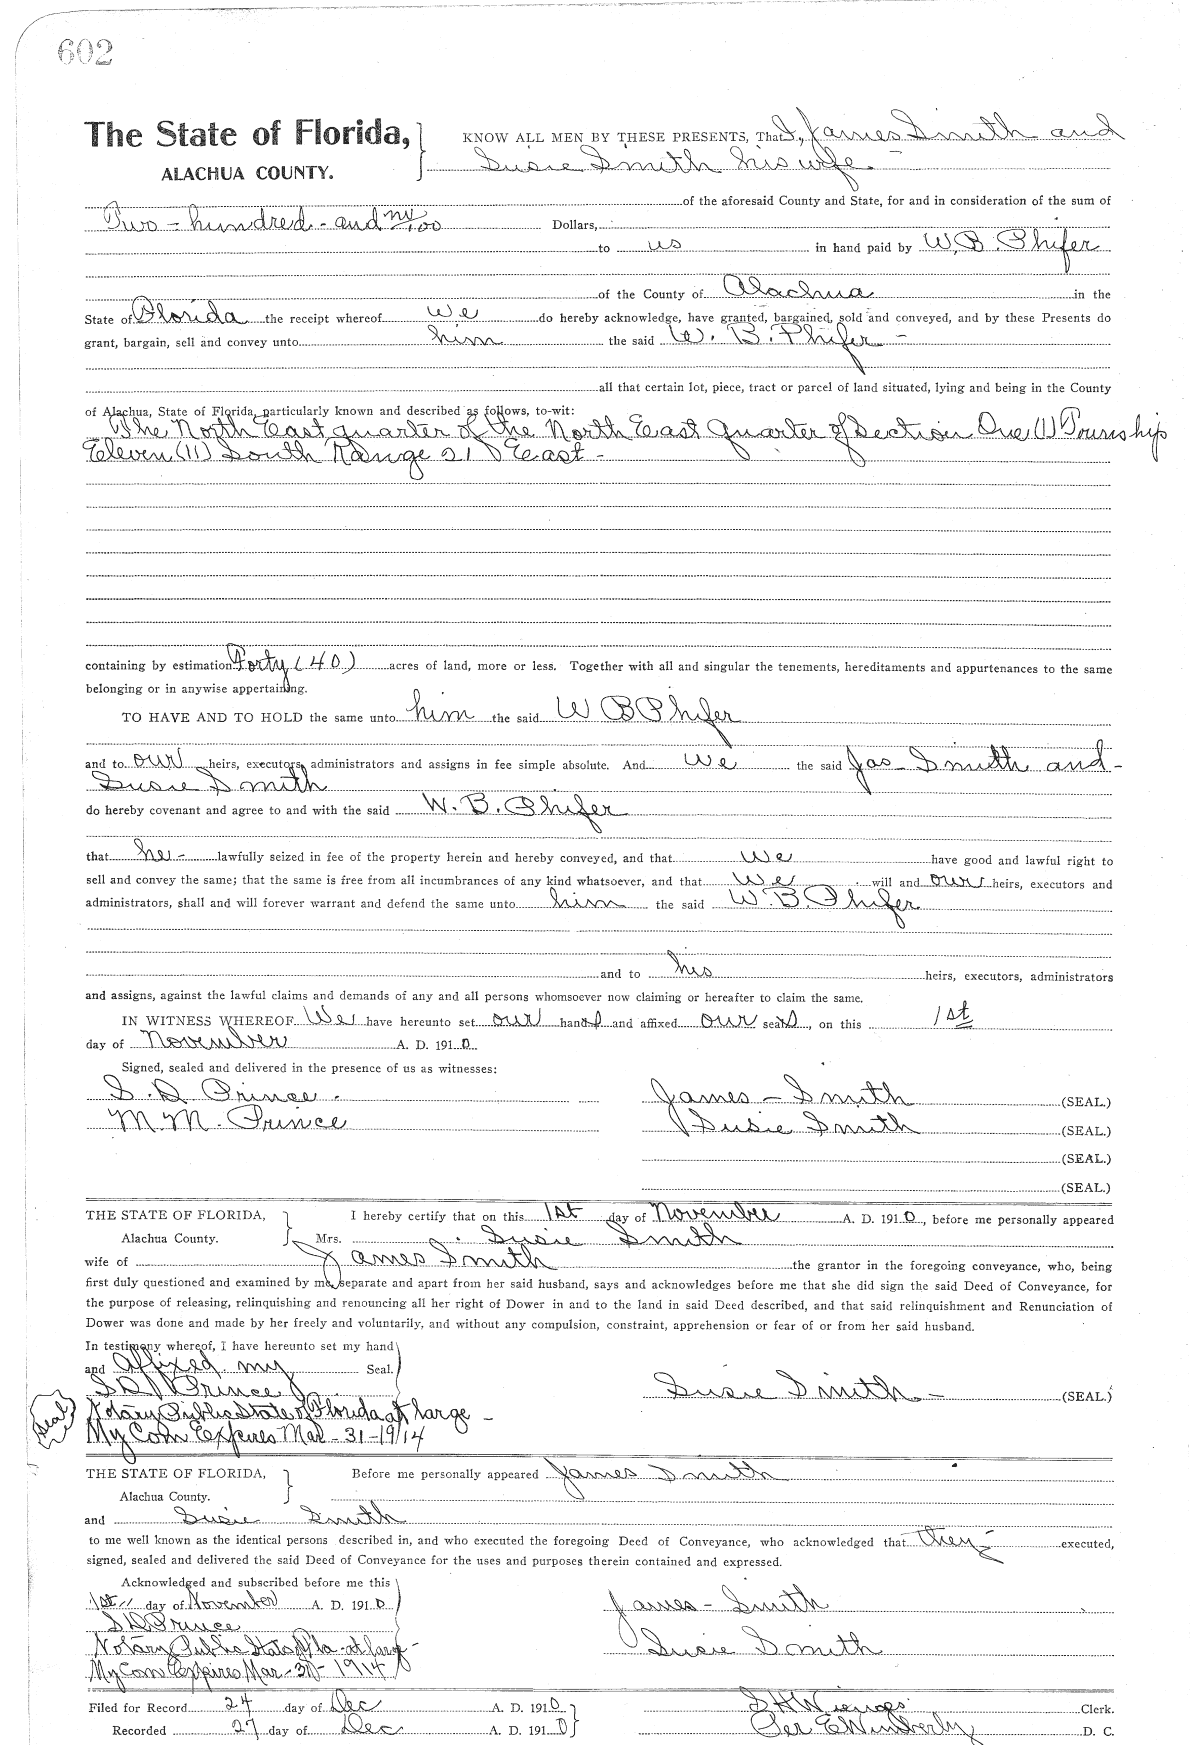 602
The State of Florida, KNOW ALL MEN BY THESE PRESENTS, That I, James Smith and
ALACHUA COUNTY. Susie Smith his wife -
of the aforesaid County and State, for and in consideration of the sum of
Two - hundred - and no/100 Dollars,
to us in hand paid by W. B. Phifer
of the County of Alachua in the
State of Florida the receipt whereof we do hereby acknowledge, have granted, bargained, sold and conveyed, and by these Presents do
grant, bargain, sell and convey unto him the said W. B. Phifer -
all that certain lot, piece, tract or parcel of land situated, lying and being in the County
of Alachua, State of Florida, particularly known and described as follows, to-wit:
The North East quarter of the North East Quarter of Section One (1) Township
Eleven (11) South Range 21 East -
containing by estimation Forty (40) acres of land, more or less. Together with all and singular the tenements, hereditaments and appurtenances to the same
belonging or in anywise appertaining.
TO HAVE AND TO HOLD the same unto him the said W B Phifer
and to our heirs, executors, administrators and assigns in fee simple absolute. And we the said Jas Smith and -
Susie Smith
do hereby covenant and agree to and with the said W. B. Phifer
that he - lawfully seized in fee of the property herein and hereby conveyed, and that we have good and lawful right to
sell and convey the same; that the same is free from all incumbrances of any kind whatsoever, and that we will and our heirs, executors and
administrators, shall and will forever warrant and defend the same unto him the said W. B. Phifer
and to his heirs, executors, administrators
and assigns, against the lawful claims and demands of any and all persons whomsoever now claiming or hereafter to claim the same.
IN WITNESS WHEREOF We have hereunto set our hands and affixed our seals, on this 1st
day of November A. D. 1910.
Signed, sealed and delivered in the presence of us as witnesses:
S. D. Prince. James - Smith (SEAL.)
M. M. Prince Susie Smith (SEAL.)
(SEAL.)
(SEAL.)
THE STATE OF FLORIDA, I hereby certify that on this 1st day of November A. D. 1910, before me personally appeared
Alachua County. Mrs. Susie Smith
wife of James Smith the grantor in the foregoing conveyance, who, being
first duly questioned and examined by me, separate and apart from her said husband, says and acknowledges before me that she did sign the said Deed of Conveyance, for
the purpose of releasing, relinquishing and renouncing all her right of Dower in and to the land in said Deed described, and that said relinquishment and Renunciation of
Dower was done and made by her freely and voluntarily, and without any compulsion, constraint, apprehension or fear of or from her said husband.
In testimony whereof, I have hereunto set my hand
and Affixed my Seal.
S D Prince Susie Smith - (SEAL.)
Seal Notary Public State of Florida at large -
My Com Expires Mar - 31 - 1914
THE STATE OF FLORIDA, Before me personally appeared James Smith
Alachua County.
and Susie Smith
to me well known as the identical persons described in, and who executed the foregoing Deed of Conveyance, who acknowledged that they - executed,
signed, sealed and delivered the said Deed of Conveyance for the uses and purposes therein contained and expressed.
Acknowledged and subscribed before me this
1st day of November A. D. 1910 James - Smith
S D Prince
Notary Public State of Fla - at large - Susie Smith
My Com Expires Mar - 31 - 1914
Filed for Record 24 day of Dec A. D. 1910 S H Wienges Clerk.
Recorded 27 day of Dec A. D. 1910 Per E Wimberly D. C.